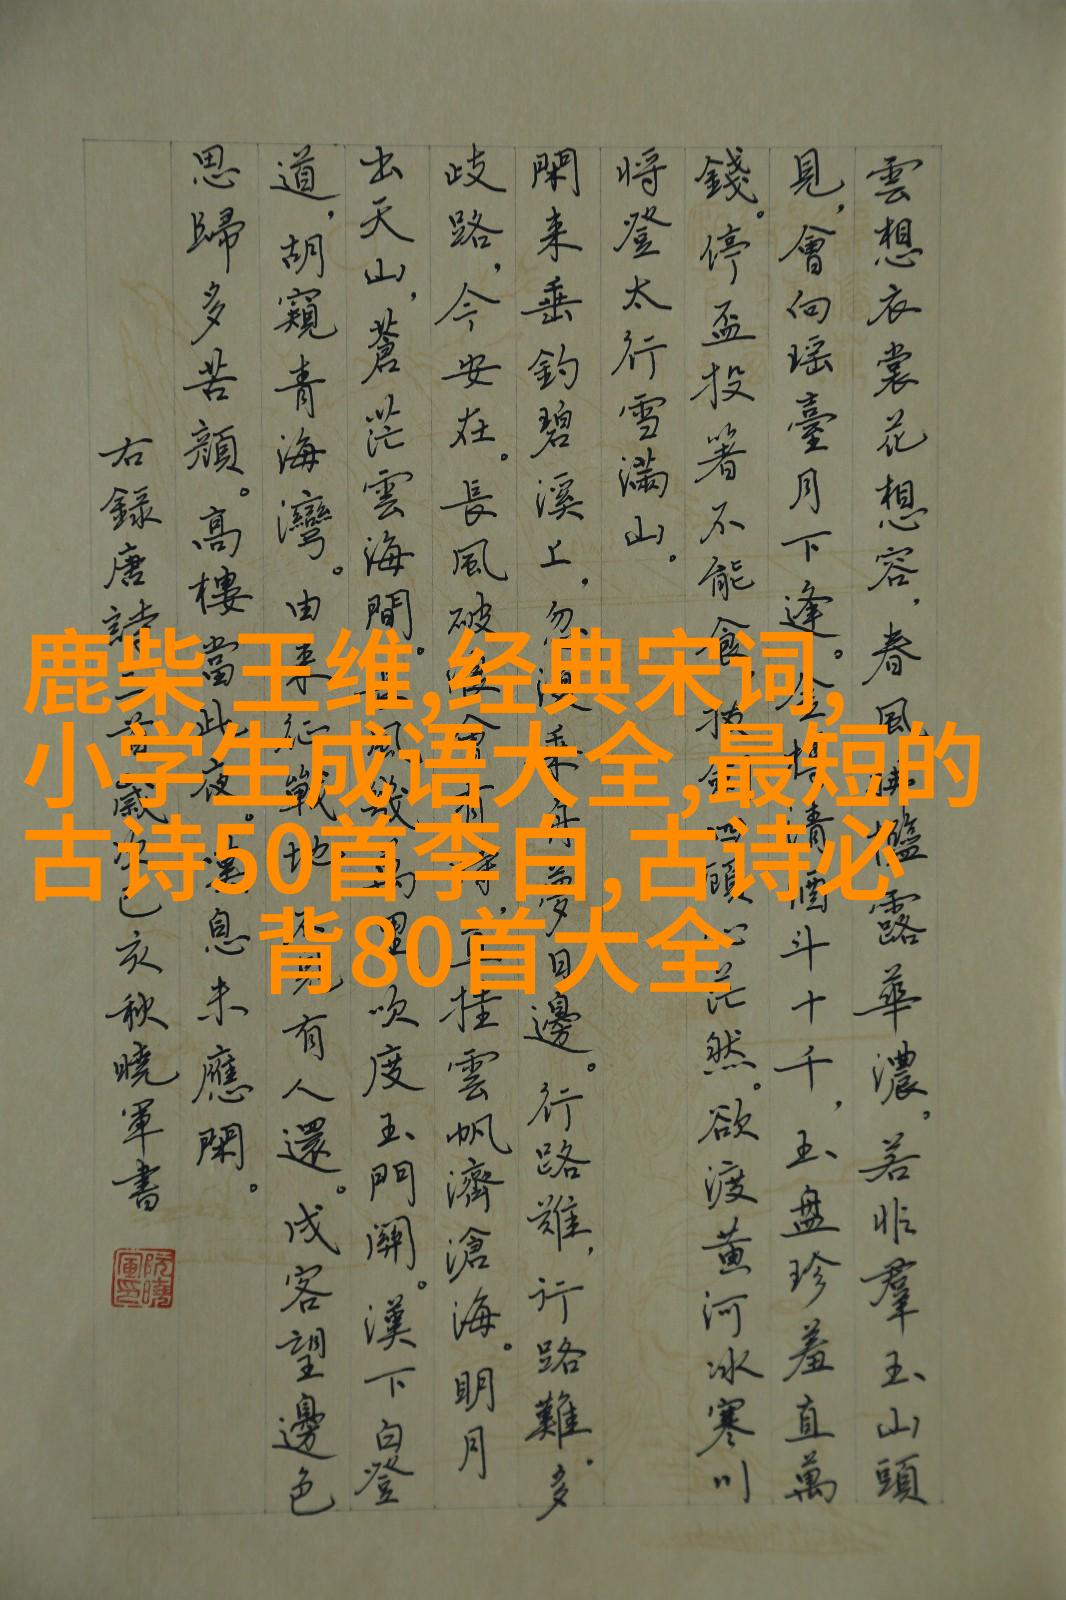 鹿柴 王维,经典宋词,
小学生成语大全,最短的
古诗50首李白,古诗必
背80首大全
雲想衣裳花想容,春風拂檻露華濃。若非羣玉山頭
見,會向瑶臺月下逢。金樽清酒斗十千,玉盤珍羞直萬
錢。停盃投箸不能食,拔劍四顧心茫然。欲渡黄河冰寒川
将登太行雪滿山。
閑来垂釣碧溪上,忽復乘舟夢日邊。行路難,行路難。多
歧路,今安在。長風破浪會有時,直挂雲帆濟滄海。明月
出天山,蒼茫雲海間。長風幾萬里吹度玉門關。漢下白登
道,胡窺青海灣。由来征戰地,不見有人還。戍客望邊色
思歸多苦顔。高樓當此夜,嘆息未應閑。
右録唐詩三首歲次己亥秋曉軍書
阮曉軍印